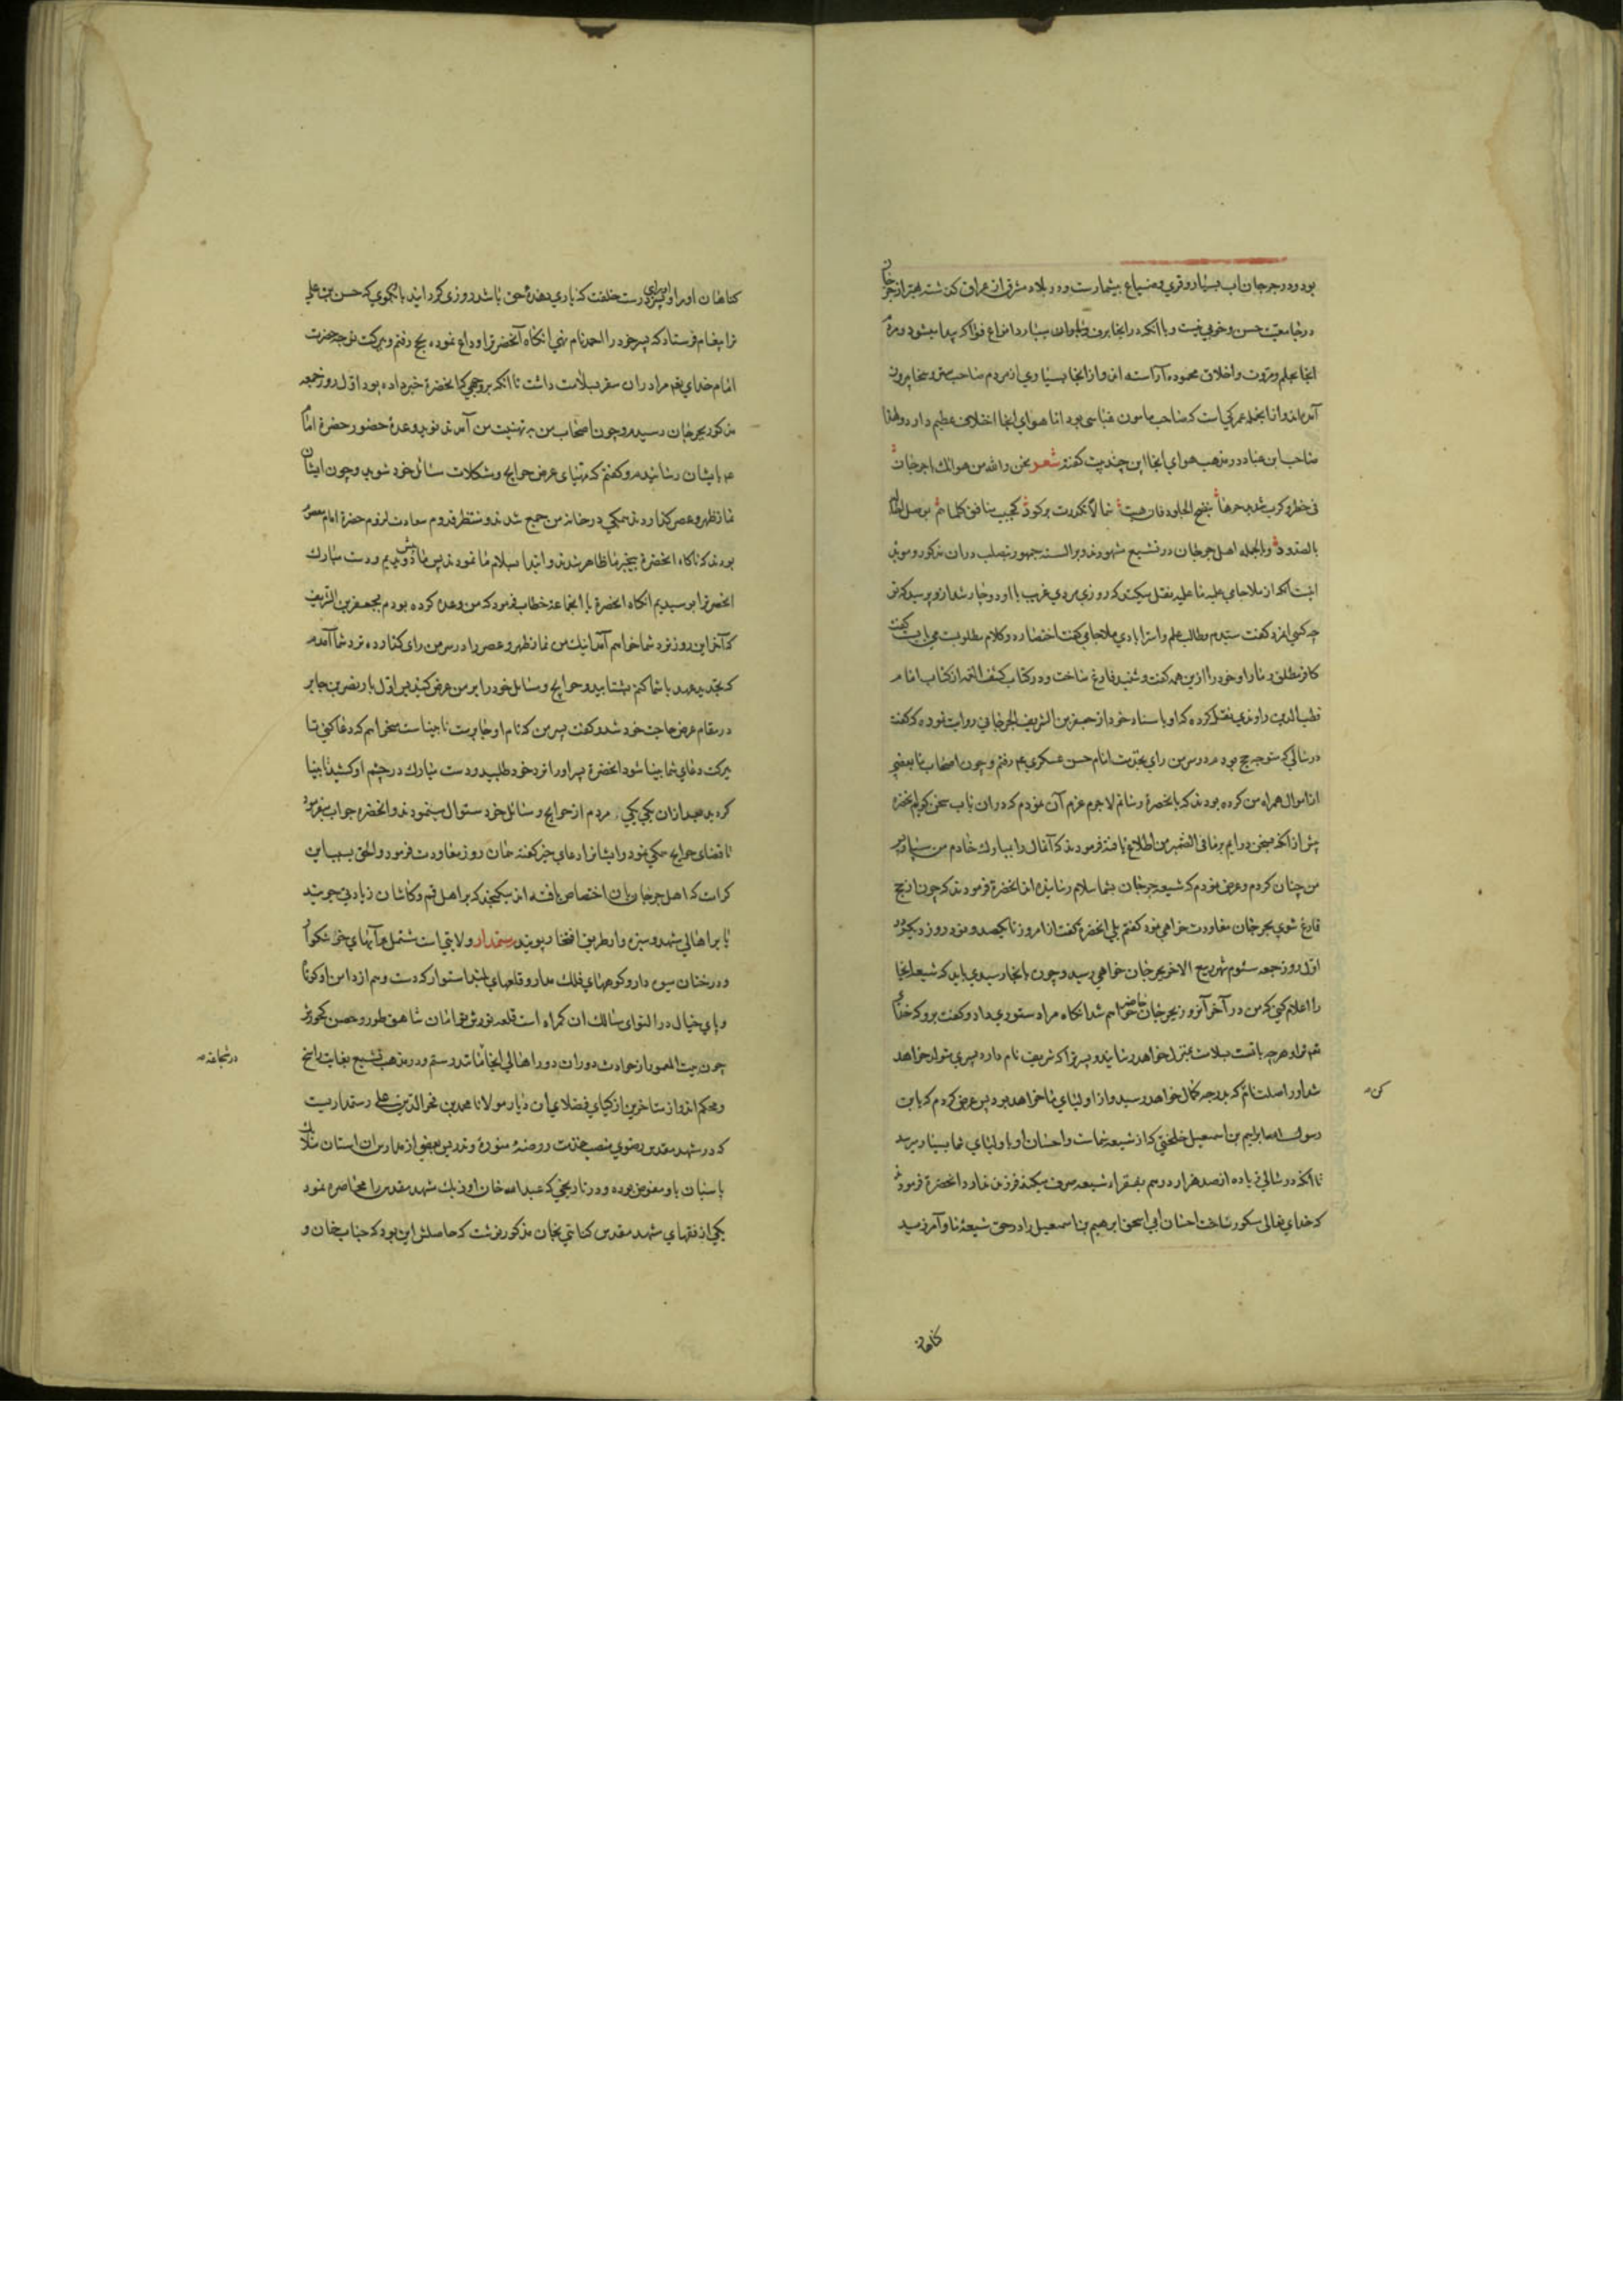 بود و در جرجان اب بسیار و قری و ضیاع بیشمارست و در بلاد مشرق از عراق گذشته بهتر از جرجان
در جامعیت حسن و خوبی نیست و با آنکه در انجا برف و نخلهای بسیار انواع فواکه پیدا میشود و مردم
انجا بعلم و مروت و اخلاق محموده آراسته اند و از انجا بسیاری از مردم صاحب ستر و سخا بیرون
آمده اند و از انجمله عمرکی است که صاحب مامون عباسی بود اما هوای انجا اختلاف عظیم دارد و لهذا
صاحب ابن عباد در مذهب هوای انجا این چند بیت گفته شعر نحن والله من هوائک یا جرجان
فی خطر و کرب شدید حرها ینضج الجلود فان هبت شمالا تکدرت برکود کحبیب منافق کلما هم بوصل
بالصدود و بالجمله اهل جرجان در تشیع مشهورند و بر السنه جمهور تصلب در ان مذکور و موید
اینست آنکه از ملا جامی علیه ما علیه نقل میکنند که روزی مردی غریب با او دوچار شد از و پرسید که تو
چه کسی انمرد گفت سیدم و طالب علم و استرابادی ملا جامی گفت اختصار در کلام مطلوبست می بایست گفت
کافر مطلق و ما را و خود را از این همه گفت و شنید فارغ ساخت و در کتاب کشف الغمه از کتاب امام
قطب الدین راوندی نقل کرده که او باسناد خود از جعفر بن الشریف الجرجانی روایت نموده که گفت
در سالی که متوجه حج بودم در سر من رای بخدمت امام حسن عسکری عم رفتم و چون اصحاب ما بعضی
از اموال همراه من کرده بودند که بانحضرة رسانم لاجرم عزم آن نمودم که در ان باب سخن کویم انحضرة
پیش از آنکه سخن در ایم بر ما فی الضمیر من اطلاع یافته فرمودند که آنمال را بمبارک خادم من سپار پس
من چنان کردم و عرض نمودم که شیعه جرجان بشما سلام رسانیده اند انحضرة فرمودند که چون از حج
فارغ شوی بجرجان معاودت خواهی نمود گفتم بلی انحضرة گفت از امروز تا یکصد و نود روز دیگر در
اول روز جمعه سئوم شهر ربیع الاخر بجرجان خواهی رسید و چون بانجا رسیدی باید که شیعه انجا
را اعلام کنی که من در آخر آنروز بجرجان حاضر خواهم شد انکاه مرا دستوری داد و گفت برو که خدای
تعم ترا و هر چه با تست بسلامت بمنزل خواهد رسانید و پسر ترا که شریف نام دارد پسری متولد خواهد
شد او را صلت نام کن که بدرجه کمال خواهد رسید و از اولیای ما خواهد بود پس عرض کردم که یا بن
رسول الله ابراهیم بن اسمعیل خلنجی که از شیعه شماست و احسان او باولیای شما بسیار میرسد
تا انکه در سالی زیاده از صد هزار درهم بفقراء شیعه صرف میکند فرزند ندارد انحضرة فرمود
که خدای تعالی مشکور ساخت احسان ابی اسحق ابرهیم بن اسمعیل را در حق شیعه ما و آمرزید
کن صح
کناهان
کناهان او را و او را پسری درست خلقت که یاری دهنده حق باشد روزی گردانید با او بگوی که حسن بن علی
ترا پیغام فرستاد که پسر خود را احمد نام نهی انکاه آنحضرترا وداع نموده بحج رفتم و ببرکت توجه حضرت
امام خدای تعم مرا در ان سفر بسلامت داشت تا انکه بر وجهی که انحضرة خبر داده بود اول روز جمعه
مذکور بجرجان رسیدم و چون اصحاب من به تهنیت من آمدند نوید وعده حضور حضرة امام
عم بایشان رسانیدم و گفتم که مهیای عرض حوایج و مشکلات مسائل خود شوید و چون ایشان
نماز ظهر و عصر گذاردند همگی در خانه من جمع شدند و منتظر قدوم سعادت لزوم حضرة امام معصوم
بودند که ناکاه انحضرة بیخبر ما ظاهر شدند و ابتدا بسلام ما نمودند پس ما پیش دویدیم و دست مبارک
انحضرترا بوسیدیم انکاه انحضرة با انجماعة خطاب فرمود که من وعده کرده بودم بجعفر بن الشریف
که آخر این روز نزد شما خواهم آمد اینک من نماز ظهر و عصر را در سر من رای گذارده نزد شما آمدم
که تجدید عهد با شما کنم بشتابید و حوایج و مسائل خود را بر من عرض کنید پس اول بار نضر بن جابر
در مقام عرض حاجت خود شد و گفت پسر من که نام او جابرست نابیناست میخواهم که دعا کنی تا
ببرکت دعای شما بینا شود انحضرة پسر او را نزد خود طلبید و دست مبارک در چشم او کشید تا بینا
گردید بعد از ان یکی یکی مردم از حوایج و مسائل خود سئوال مینمودند و انحضره جواب میفرمود
تا قضای حوایج همگی نمود و ایشانرا دعای خیر گفته همان روز معاودت فرمود و الحق بسبب این
کرامت که اهل جرجان بان اختصاص یافته اند میگنجد که بر اهل قم و کاشان زیادتی جویند
یا بر اهالی مشهد و سبزوار طریق افتخار پویند رستمدار ولایتی است مشتمل بر آبهای خوشکوار
و درختان میوه دار و کوههای فلک مدار و قلعهای بلند استوار که دست وهم از دامن او کوتاه
و پای خیال در التوای مسالک ان گمراه است قلعه نور ش توامان شاهق طور و حصن کجورش
چون بیت المعمور از حوادث دوران دور اهالی انجا مانند رستم و در مذهب تشیع بغایت راسخ
و محکم اند و از متاخرین ازکیای فضلای ان دیار مولانا محمد بن فخر الدین علی رستمداریست
که در مشهد مقدس رضوی منصب خدمت روضه منوره و تدریس بعضی از مدارس ان استان ملائک
پاسبان باو مفوض بوده و در تاریخی که عبدالله خان اوزبک مشهد مقدس را محاصره نمود
یکی از فقهای مشهد مقدس کتابتی بخان مذکور نوشت که حاصلش این بود که جناب خان و
در شجاعت صح